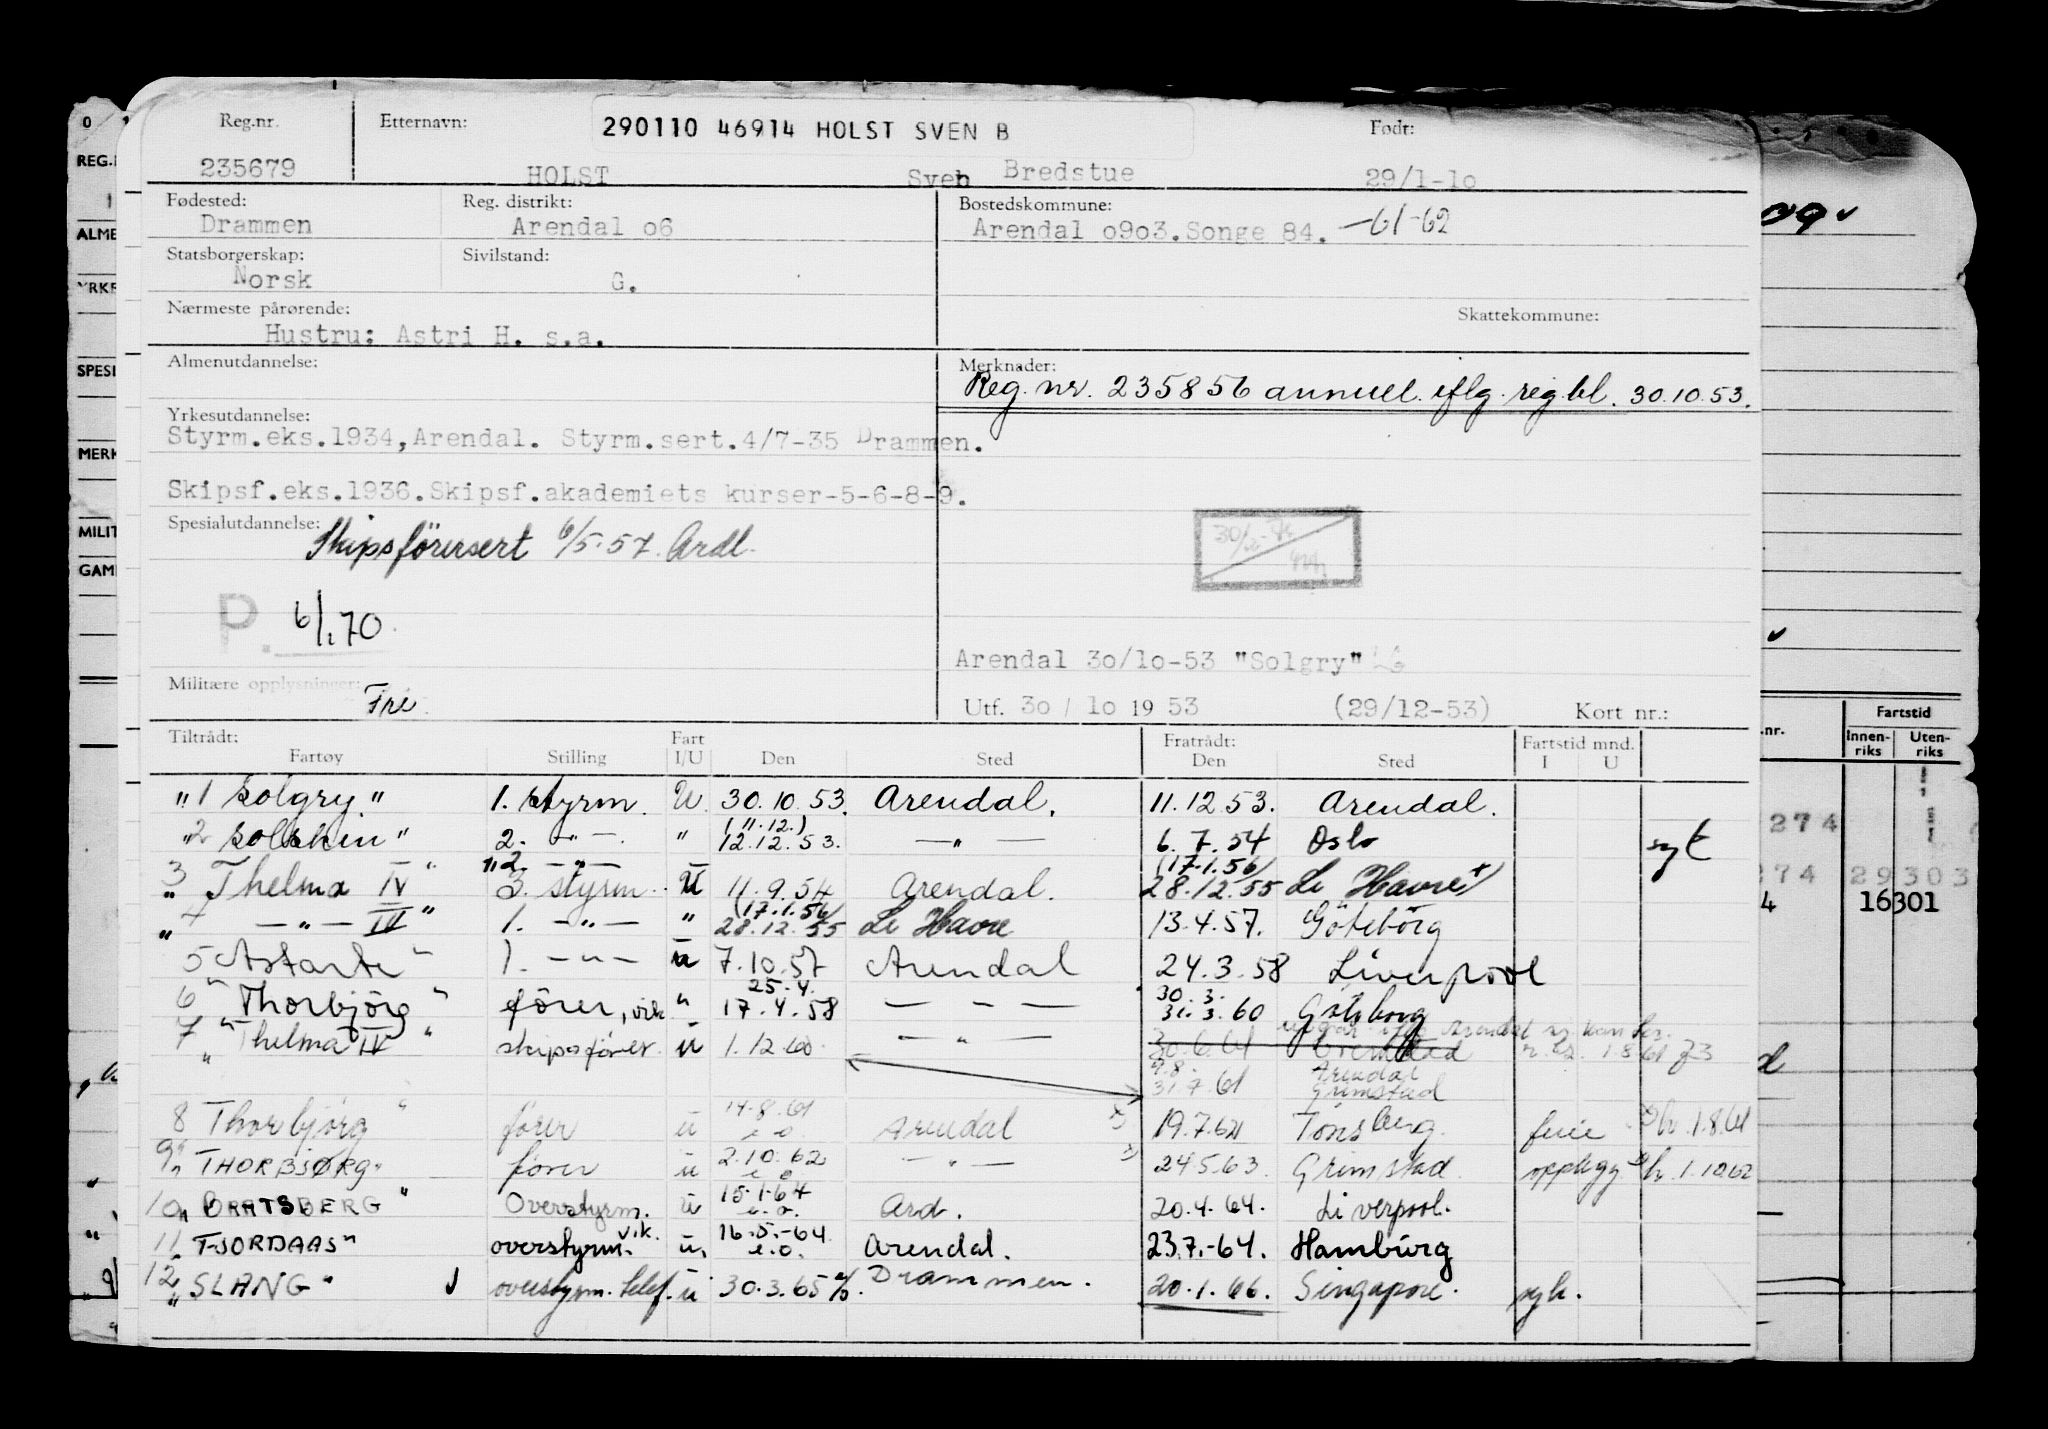 Reg.nr. Etternavn: 290110 46914 HOLST SVEN B Født:
235679 HOLST Sven Bredstue 29/1-10
Fødested: Reg. distrikt: Bostedskommune:
Drammen Arendal o6 Arendal o9o3.Songe 84. -61-62
Statsborgerskap: Sivilstand:
Norsk G.
Nærmeste pårørende: Skattekommune:
Hustru: Astri H. s.a.
Almenutdannelse: Merknader:
Reg. nr. 235856 annuel. iflg. reg.bl. 30.10.53.
Yrkesutdannelse:
Styrm.eks.1934,Arendal. Styrm.sert.4/7-35 Drammen.
Skipsf.eks.1936.Skipsf.akademiets kurser-5-6-8-9.
Spesialutdannelse:
Skipsförersert 6/5-57. Ardl.
P. 6/1.70
Arendal 3o/1o-53 "Solgry"
Militære opplysninger: Fri
Utf. 3o / 1o 19 53 (29/12-53) Kort nr.:
Tiltrådt: Fart Fratrådt: Fartstid mnd.
Fartøy Stilling I/U Den Sted Den Sted I U
"1 Solgry" 1. styrm. U. 30.10.53. Arendal. 11.12.53. Arendal.
(11.12.)
"2 Solskin" 2. -"- " 12.12.53. -"- 6.7.54 Oslo syk
"2. -"- (17.1.56)
3 " Thelma IV " 3. styrm. U 11.9.54 Arendal. 28.12.55 Le Havre
(17.1.56)
4 " -"- IV" 1. -"- " 28.12.55 Le Havre 13.4.57. Göteborg
5 Astarte" 1. -"- u 7.10.57 Arendal 24.3.58 Liverpool
25.4. 30.3.
6 " Thorbjörg " förer, vik " 17.4.58 -"- 31.3.60 Göteborg
7 " Thelma IV " skipsfører. u 1.12.60. -"- 30.6.61 Grimstad 1.8.61
9.8. Arendal
31.7.61 Grimstad
14.8.61
8 Thorbjørg " fører u e.o. Arendal 19.7.62 Tønsberg. ferie 1.8.61
9 " THORBJØRG" fører u 2.10.62 e.o. -"- 24.5.63. Grimstad. opplegg 1.10.62
10 " BRATSBERG " Overstyrm. u 15.1.64 e.o. Ard. 20.4.64. Liverpool.
11 " FJORDAAS" overstyrm. vik. u. 16.5.-64. e.o. Arendal. 23.7.-64. Hamburg
12 " SLANG " overstyrm. telef. u 30.3.65 Drammen. 20.1.66. Singapore. syk.
REG.
ALME
YRKE
SPESI
MERK
MILIT
GAM
nr. Fartstid
Innenriks Utenriks
274
274 29303
4 16301